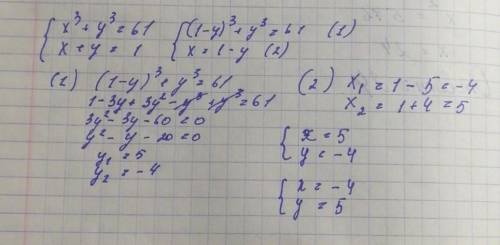 { x³ + y³ = 61
x + y = 1
{ (1-y)³ + y³ = 61 (1)
x = 1 - y (2)
(1) (1-y)³ + y³ = 61
1 - 3y + 3y² - y³ + y³ = 61
3y² - 3y - 60 = 0
y² - y - 20 = 0
y₁ = 5
y₂ = -4
(2) x₁ = 1 - 5 = -4
x₂ = 1 + 4 = 5
{ x = 5
y = -4
{ x = -4
y = 5